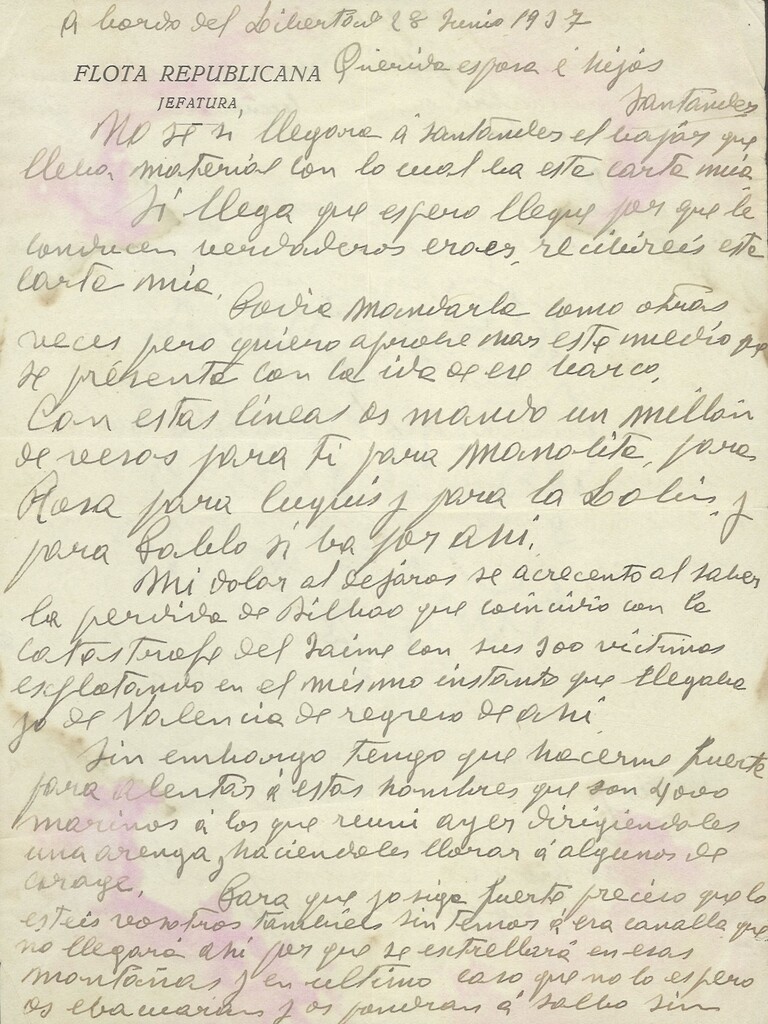 A bordo del Libertad 28 Junio 1937
FLOTA REPUBLICANA
JEFATURA
Querida esposa é hijos
Santander
No se si llegara á Santander el bajár que
lleva material con lo cual ba este carta mia
Si llega que espero llegue por que le
conducen verdaderos eroes, recibireis este
carta mia,
Podia mandarla como otras
veces pero quiero aprobe mar este medio que
se presenta con la ida de ese barco,
Con estas líneas os mando un millon
de vesos para ti para Manolita, para
Rosa para Luquis y para la Lolin, y
para Pablo si ba por ahi,
Mi dolor al dejaros se acrecento al saber
la perdida de Bilbao que coincidio con la
catastrofe del Jaime con sus 300 victimas
esplotando en el mismo instante que llegaba
yo de Valencia de regreso de ahi
Sin embargo tengo que hacerme fuerte
para alentar á estos hombres que son 4000
marinos á los que reuni ayer dirigiendoles
una arenga y haciendoles llorar á algunos de
corage,
Para que yo siga fuerte preciso que lo
esteis vosotros tambien sin temor á esa canalla que
no llegará ahi por que se estrellará en esas
montañas y en ultimo caso que no lo espero
os ebacuaran y os pondran á salbo sin